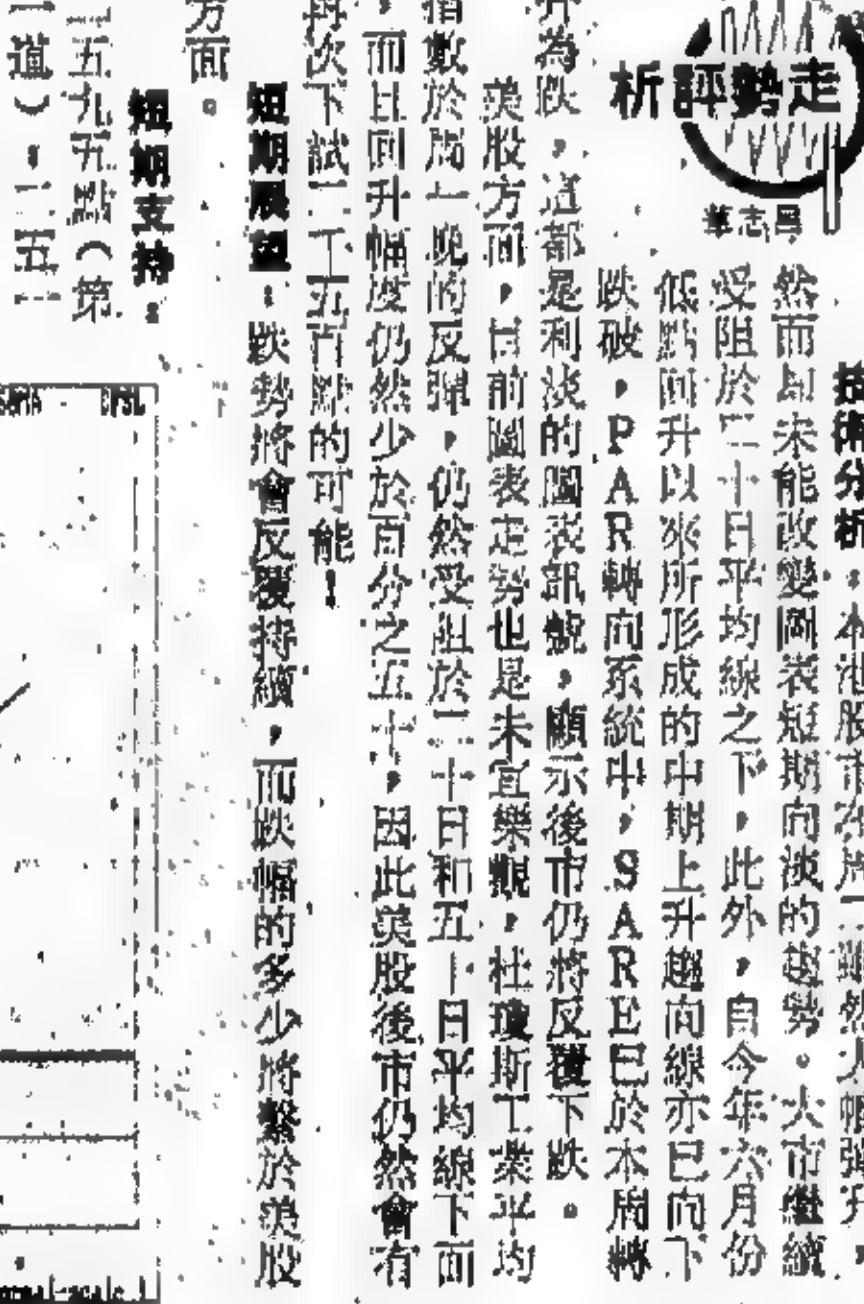 走勢評析
呂志華
技術分析：本港股市在周一雖然大幅彈升，
然而却未能改變圖表短期向淡的趨勢。大市繼續
受阻於二十日平均線之下，此外，自今年六月份
低點回升以來所形成的中期上升趨向線亦已向下
跌破，PAR轉向系統中，SARE已於本周轉
升為跌，這都是利淡的圖表訊號，顯示後市仍將反覆下跌。
美股方面，目前圖表走勢也是未宜樂觀，杜瓊斯工業平均
指數於周一晚的反彈，仍然受阻於二十日和五十日平均線下面
，而且回升幅度仍然少於百分之五十，因此美股後市仍然會有
再次下試二千五百點的可能！
短期展望：跌勢將會反覆持續，而跌幅的多少將繫於美股
方面。
短期支持：
五九五點（第
一道）。二五